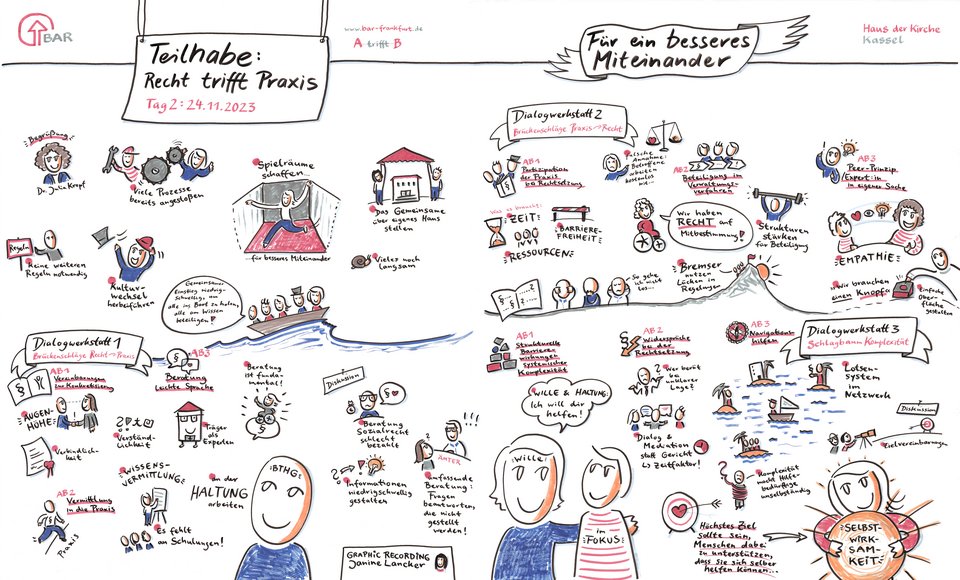 BAR
Teilhabe:
Recht trifft Praxis
Tag 2: 24.11.2023
www.bar-frankfurt.de
A trifft B
Für ein besseres
Miteinander
Haus der Kirche
Kassel
Begrüßung
Dr. Julia Kropf
Viele Prozesse
bereits angestoßen
Regeln
Keine weiteren
Regeln notwendig
Kultur-
wechsel
herbeiführen
Spielräume
schaffen...
...für besseres Miteinander
Das Gemeinsame
über eigenes Haus
stellen
Vieles noch
langsam
Gemeinsamer
Einstieg niedrig-
schwellig, um
alle ins Boot zu holen,
alle am Wissen
beteiligen!
Dialogwerkstatt 1
Brückenschläge Recht → Praxis
AB1
Vereinbarungen
zur Konkretisierung
AUGEN-
HÖHE
Verbindlich-
keit
AB2
Vermittlung
in die Praxis
Praxis
Verständ-
lichkeit
WISSENS-
VERMITTLUNG
Es fehlt
an Schulungen!
AB3
Beratung
Leichte Sprache
Träger
als
Experten
Beratung
ist funda-
mental!
An der
HALTUNG
arbeiten
BTHG
Diskussion
Beratung
Sozialrecht
schlecht
bezahlt
Informationen
niedrigschwellig
gestalten
AMTEX
Umfassende
Beratung:
Fragen
beantworten,
die nicht
gestellt
werden!
GRAPHIC RECORDING
Janine Lancker
Dialogwerkstatt 2
Brückenschläge Praxis → Recht
AB1
Partizipation
der Praxis
bei Rechtsetzung
Falsche
Annahme:
Betroffene
arbeiten
kostenlos
mit...
AB2
Beteiligung im
Verwaltungs-
verfahren
AB3
Peer-Prinzip
Expert:in
in eigener Sache
Was es braucht:
ZEIT
BARRIERE-
FREIHEIT
RESSOURCEN
Wir haben
RECHT auf
Mitbestimmung!
Strukturen
stärken
für Beteiligung
EMPATHIE
So gehe
ich nicht
los...
Bremser
nutzen
Lücken in
Regelungen
Wir brauchen
einen Knopf
Einfache
Ober-
fläche
gestalten
AB1
Strukturelle
Barriere-
wirkungen
systemischer
Komplexität
AB2
Widersprüche
bei der
Rechtsetzung
Wer berät
bei
unklarer
Lage?
AB3
Navigations-
hilfen
Dialogwerkstatt 3
Schlagbaum Komplexität
Lotsen-
system
im
Netzwerk
Diskussion
Zielvereinbarungen
WILLE & HALTUNG:
Ich will dir
helfen!
Dialog &
Mediation
statt Gericht
↳ Zeitfaktor!
Wille
im
FOKUS
Komplexität
macht Hilfe-
bedürftige
unselbständig
Höchstes Ziel
sollte sein,
Menschen dabei
zu unterstützen,
dass sie sich selber
helfen können...
SELBST-
WIRK-
SAM-
KEIT